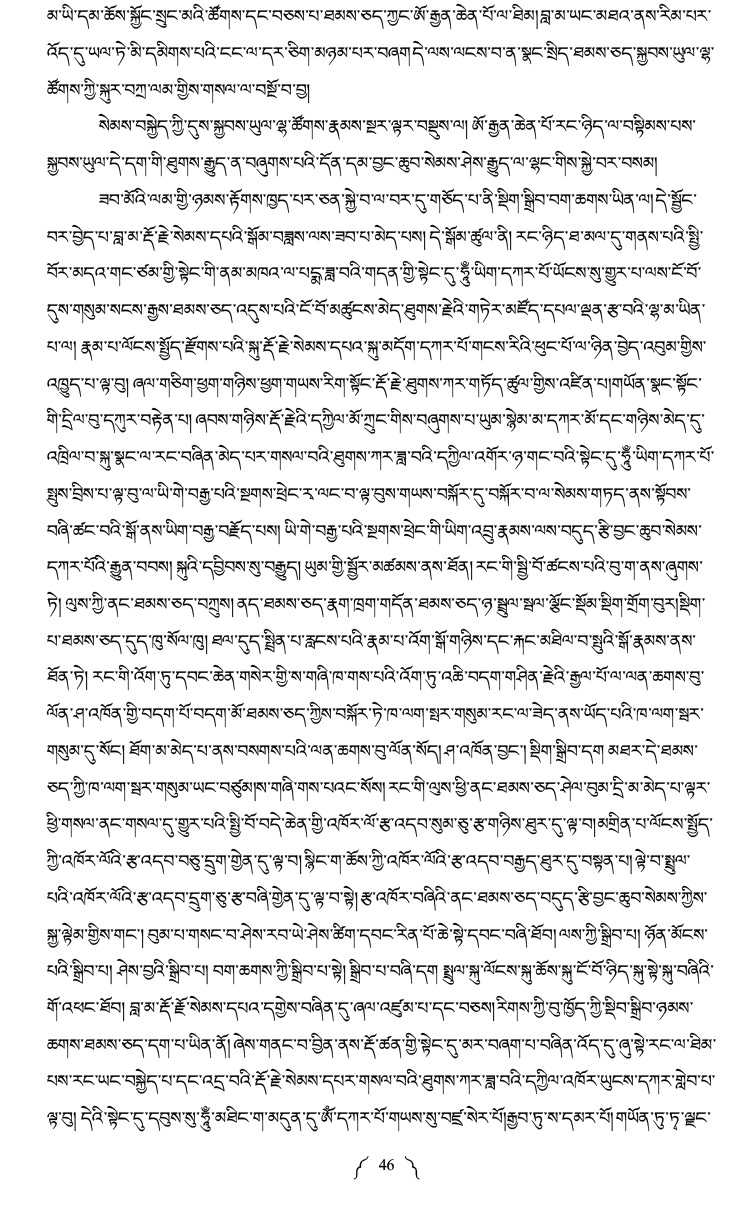 མ་ཡི་དམ་ཆོས་སྐྱོང་སྲུང་མའི་ཚོགས་དང་བཅས་པ་ཐམས་ཅད་ཀྱང་ཨོ་རྒྱན་ཆེན་པོ་ལ་ཐིམ། བླ་མ་ཡང་མཐའ་ནས་རིམ་པར་
འོད་དུ་ཡལ་ཏེ་མི་དམིགས་པའི་ངང་ལ་དར་ཅིག་མཉམ་པར་བཞག དེ་ལས་ལངས་བ་ན་སྣང་སྲིད་ཐམས་ཅད་སྐྱབས་ཡུལ་ལྷ་
ཚོགས་ཀྱི་སྐུར་བཀྲ་ལམ་གྱིས་གསལ་ལ་བསྔོ་བ་བྱ།
སེམས་བསྐྱེད་ཀྱི་དུས་སྐྱབས་ཡུལ་ལྷ་ཚོགས་རྣམས་སྔར་ལྟར་བསྡུས་ལ། ཨོ་རྒྱན་ཆེན་པོ་རང་ཉིད་ལ་བསྟིམས་པས་
སྐྱབས་ཡུལ་དེ་དག་གི་ཐུགས་རྒྱུད་ན་བཞུགས་པའི་དོན་དམ་བྱང་ཆུབ་སེམས་ཤེས་རྒྱུད་ལ་ལྷང་གིས་སྐྱེ་བར་བསམ།
ཟབ་མོའི་ལམ་གྱི་ཉམས་རྟོགས་ཁྱད་པར་ཅན་སྐྱེ་བ་ལ་བར་དུ་གཅོད་པ་ནི་སྡིག་སྒྲིབ་བག་ཆགས་ཡིན་ལ། དེ་སྦྱོང་
བར་བྱེད་པ་བླ་མ་རྡོ་རྗེ་སེམས་དཔའི་སྒོམ་བཟླས་ལས་ཟབ་པ་མེད་པས། དེ་སྒོམ་ཚུལ་ནི། རང་ཉིད་ཐ་མལ་དུ་གནས་པའི་སྤྱི་
བོར་མདའ་གང་ཙམ་གྱི་སྟེང་གི་ནམ་མཁའ་ལ་པདྨ་ཟླ་བའི་གདན་གྱི་སྟེང་དུ་ཧཱུྃ་ཡིག་དཀར་པོ་ཡོངས་སུ་གྱུར་པ་ལས་ངོ་བོ་
དུས་གསུམ་སངས་རྒྱས་ཐམས་ཅད་འདུས་པའི་ངོ་བོ་མཚུངས་མེད་ཐུགས་རྗེའི་གཏེར་མཛོད་དཔལ་ལྡན་རྩ་བའི་བླ་མ་ཡིན་
པ་ལ། རྣམ་པ་ལོངས་སྤྱོད་རྫོགས་པའི་སྐུ་རྡོ་རྗེ་སེམས་དཔའ་སྐུ་མདོག་དཀར་པོ་གངས་རིའི་ཕུང་པོ་ལ་ཉིན་བྱེད་འབུམ་གྱིས་
འཁྱུད་པ་ལྟ་བུ། ཞལ་གཅིག་ཕྱག་གཉིས་ཕྱག་གཡས་རིག་སྟོང་རྡོ་རྗེ་ཐུགས་ཀར་གཏོད་ཚུལ་གྱིས་འཛིན་པ། གཡོན་སྣང་སྟོང་
གི་དྲིལ་བུ་དཀུར་བརྟེན་པ། ཞབས་གཉིས་རྡོ་རྗེའི་དཀྱིལ་མོ་ཀྲུང་གིས་བཞུགས་པ་ཡུམ་སྙེམ་མ་དཀར་མོ་དང་གཉིས་མེད་དུ་
འཁྲིལ་བ་སྐུ་སྣང་ལ་རང་བཞིན་མེད་པར་གསལ་བའི་ཐུགས་ཀར་ཟླ་བའི་དཀྱིལ་འཁོར་ཉ་གང་བའི་སྟེང་དུ་ཧཱུྃ་ཡིག་དཀར་པོ་
སྤུས་བྲིས་པ་ལྟ་བུ་ལ་ཡི་གེ་བརྒྱ་པའི་སྔགས་ཕྲེང་རྭ་ལང་བ་ལྟ་བུས་གཡས་བསྐོར་དུ་བསྐོར་བ་ལ་སེམས་གཏད་ནས་སྟོབས་
བཞི་ཚང་བའི་སྒོ་ནས་ཡིག་བརྒྱ་བརྗོད་པས། ཡི་གེ་བརྒྱ་པའི་སྔགས་ཕྲེང་གི་ཡིག་འབྲུ་རྣམས་ལས་བདུད་རྩི་བྱང་ཆུབ་སེམས་
དཀར་པོའི་རྒྱུན་བབས། སྐུའི་དབྱིབས་སུ་བརྒྱུད། ཡུམ་གྱི་སྦྱོར་མཚམས་ནས་ཐོན། རང་གི་སྤྱི་བོ་ཚངས་པའི་བུ་ག་ནས་ཞུགས་
ཏེ། ལུས་ཀྱི་ནང་ཐམས་ཅད་བཀྲུས། ནད་ཐམས་ཅད་རྣག་ཁྲག་གདོན་ཐམས་ཅད་ཉ་སྦྲུལ་སྦལ་ལྕོང་སྡོམ་སྡིག་གྲོག་བུར། སྡིག་
པ་ཐམས་ཅད་དུད་ཁུ་སོལ་ཁུ། ཐལ་དུད་སྤྲིན་པ་རླངས་པའི་རྣམ་པ་འོག་སྒོ་གཉིས་དང་རྐང་མཐིལ་བ་སྤུའི་སྒོ་རྣམས་ནས་
ཐོན་ཏེ། རང་གི་འོག་ཏུ་དབང་ཆེན་གསེར་གྱི་ས་གཞི་ཁ་གས་པའི་འོག་ཏུ་འཆི་བདག་གཤིན་རྗེའི་རྒྱལ་པོ་ལ་ལན་ཆགས་བུ་
ལོན་ཤ་འཁོན་གྱི་བདག་པོ་བདག་མོ་ཐམས་ཅད་ཀྱིས་བསྐོར་ཏེ་ཁ་ལག་སྦར་གསུམ་རང་ལ་ཟེད་ནས་ཡོད་པའི་ཁ་ལག་སྦར་
གསུམ་དུ་སོང། ཐོག་མ་མེད་པ་ནས་བསགས་པའི་ལན་ཆགས་བུ་ལོན་སོད། ཤ་འཁོན་བྱང་། སྡིག་སྒྲིབ་དག མཐར་དེ་ཐམས་
ཅད་ཀྱི་ཁ་ལག་སྦར་གསུམ་ཡང་བཙུམ། ས་གཞི་གས་པའང་སོས། རང་གི་ལུས་ཕྱི་ནང་ཐམས་ཅད་ཤེལ་བུམ་དྲི་མ་མེད་པ་ལྟར་
ཕྱི་གསལ་ནང་གསལ་དུ་གྱུར་པའི་སྤྱི་བོ་བདེ་ཆེན་གྱི་འཁོར་ལོ་རྩ་འདབ་སུམ་ཅུ་རྩ་གཉིས་ཐུར་དུ་ལྟ་བ། མགྲིན་པ་ལོངས་སྤྱོད་
ཀྱི་འཁོར་ལོའི་རྩ་འདབ་བཅུ་དྲུག་གྱེན་དུ་ལྟ་བ། སྙིང་ག་ཆོས་ཀྱི་འཁོར་ལོའི་རྩ་འདབ་བརྒྱད་ཐུར་དུ་བསྟན་པ། ལྟེ་བ་སྤྲུལ་
པའི་འཁོར་ལོའི་རྩ་འདབ་དྲུག་ཅུ་རྩ་བཞི་གྱེན་དུ་ལྟ་བ་སྟེ། རྩ་འཁོར་བཞིའི་ནང་ཐམས་ཅད་བདུད་རྩི་བྱང་ཆུབ་སེམས་ཀྱིས་
སྐྱ་ལྟེམ་གྱིས་གང་། བུམ་པ་གསང་བ་ཤེས་རབ་ཡེ་ཤེས་ཚིག་དབང་རིན་པོ་ཆེ་སྟེ་དབང་བཞི་ཐོབ། ལས་ཀྱི་སྒྲིབ་པ། ཉོན་མོངས་
པའི་སྒྲིབ་པ། ཤེས་བྱའི་སྒྲིབ་པ། བག་ཆགས་ཀྱི་སྒྲིབ་པ་སྟེ། སྒྲིབ་པ་བཞི་དག སྤྲུལ་སྐུ་ལོངས་སྐུ་ཆོས་སྐུ་ངོ་བོ་ཉིད་སྐུ་སྟེ་སྐུ་བཞིའི་
གོ་འཕང་ཐོབ། བླ་མ་རྡོ་རྗེ་སེམས་དཔའ་དགྱེས་བཞིན་དུ་ཞལ་འཛུམ་པ་དང་བཅས། རིགས་ཀྱི་བུ་ཁྱོད་ཀྱི་སྡིག་སྒྲིབ་ཉམས་
ཆགས་ཐམས་ཅད་དག་པ་ཡིན་ནོ། ཞེས་གནང་བ་བྱིན་ནས་རྡོ་ཚན་གྱི་སྟེང་དུ་མར་བཞག་པ་བཞིན་འོད་དུ་ཞུ་སྟེ་རང་ལ་ཐིམ་
པས་རང་ཡང་བསྐྱེད་པ་དང་འདྲ་བའི་རྡོ་རྗེ་སེམས་དཔར་གསལ་བའི་ཐུགས་ཀར་ཟླ་བའི་དཀྱིལ་འཁོར་ཡུངས་དཀར་གླེབ་པ་
ལྟ་བུ། དེའི་སྟེང་དུ་དབུས་སུ་ཧཱུྃ་མཐིང་ག་མདུན་དུ་ཨོཾ་དཀར་པོ་གཡས་སུ་བཛྲ་སེར་པོ། རྒྱབ་ཏུ་ས་དམར་པོ། གཡོན་ཏུ་ཏྭ་ལྗང་
46